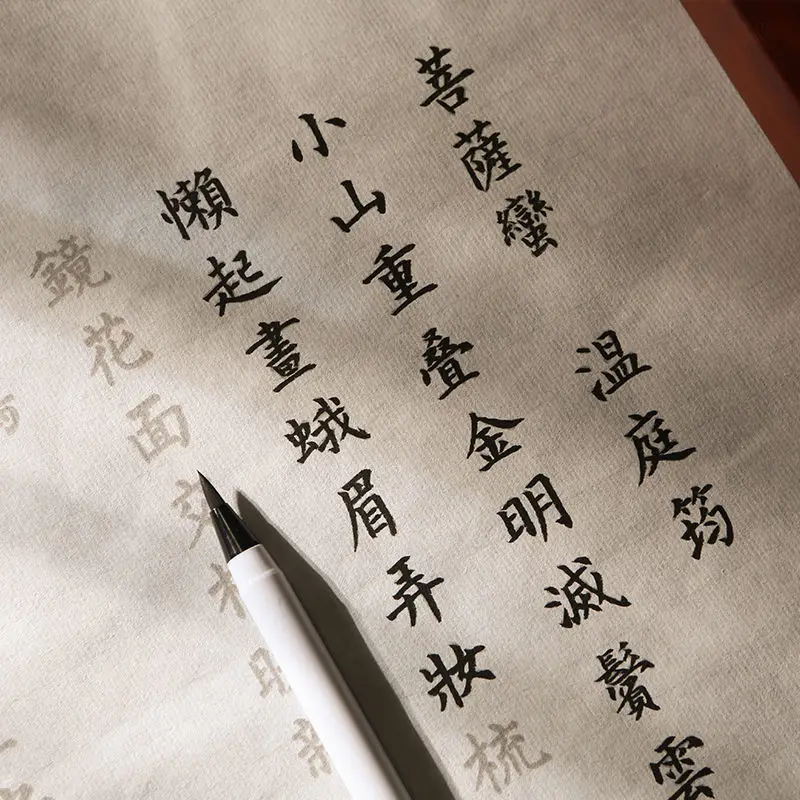 菩薩蠻 温庭筠
小山重叠金明滅鬢雲
懶起畫蛾眉弄妝梳
鏡花面交